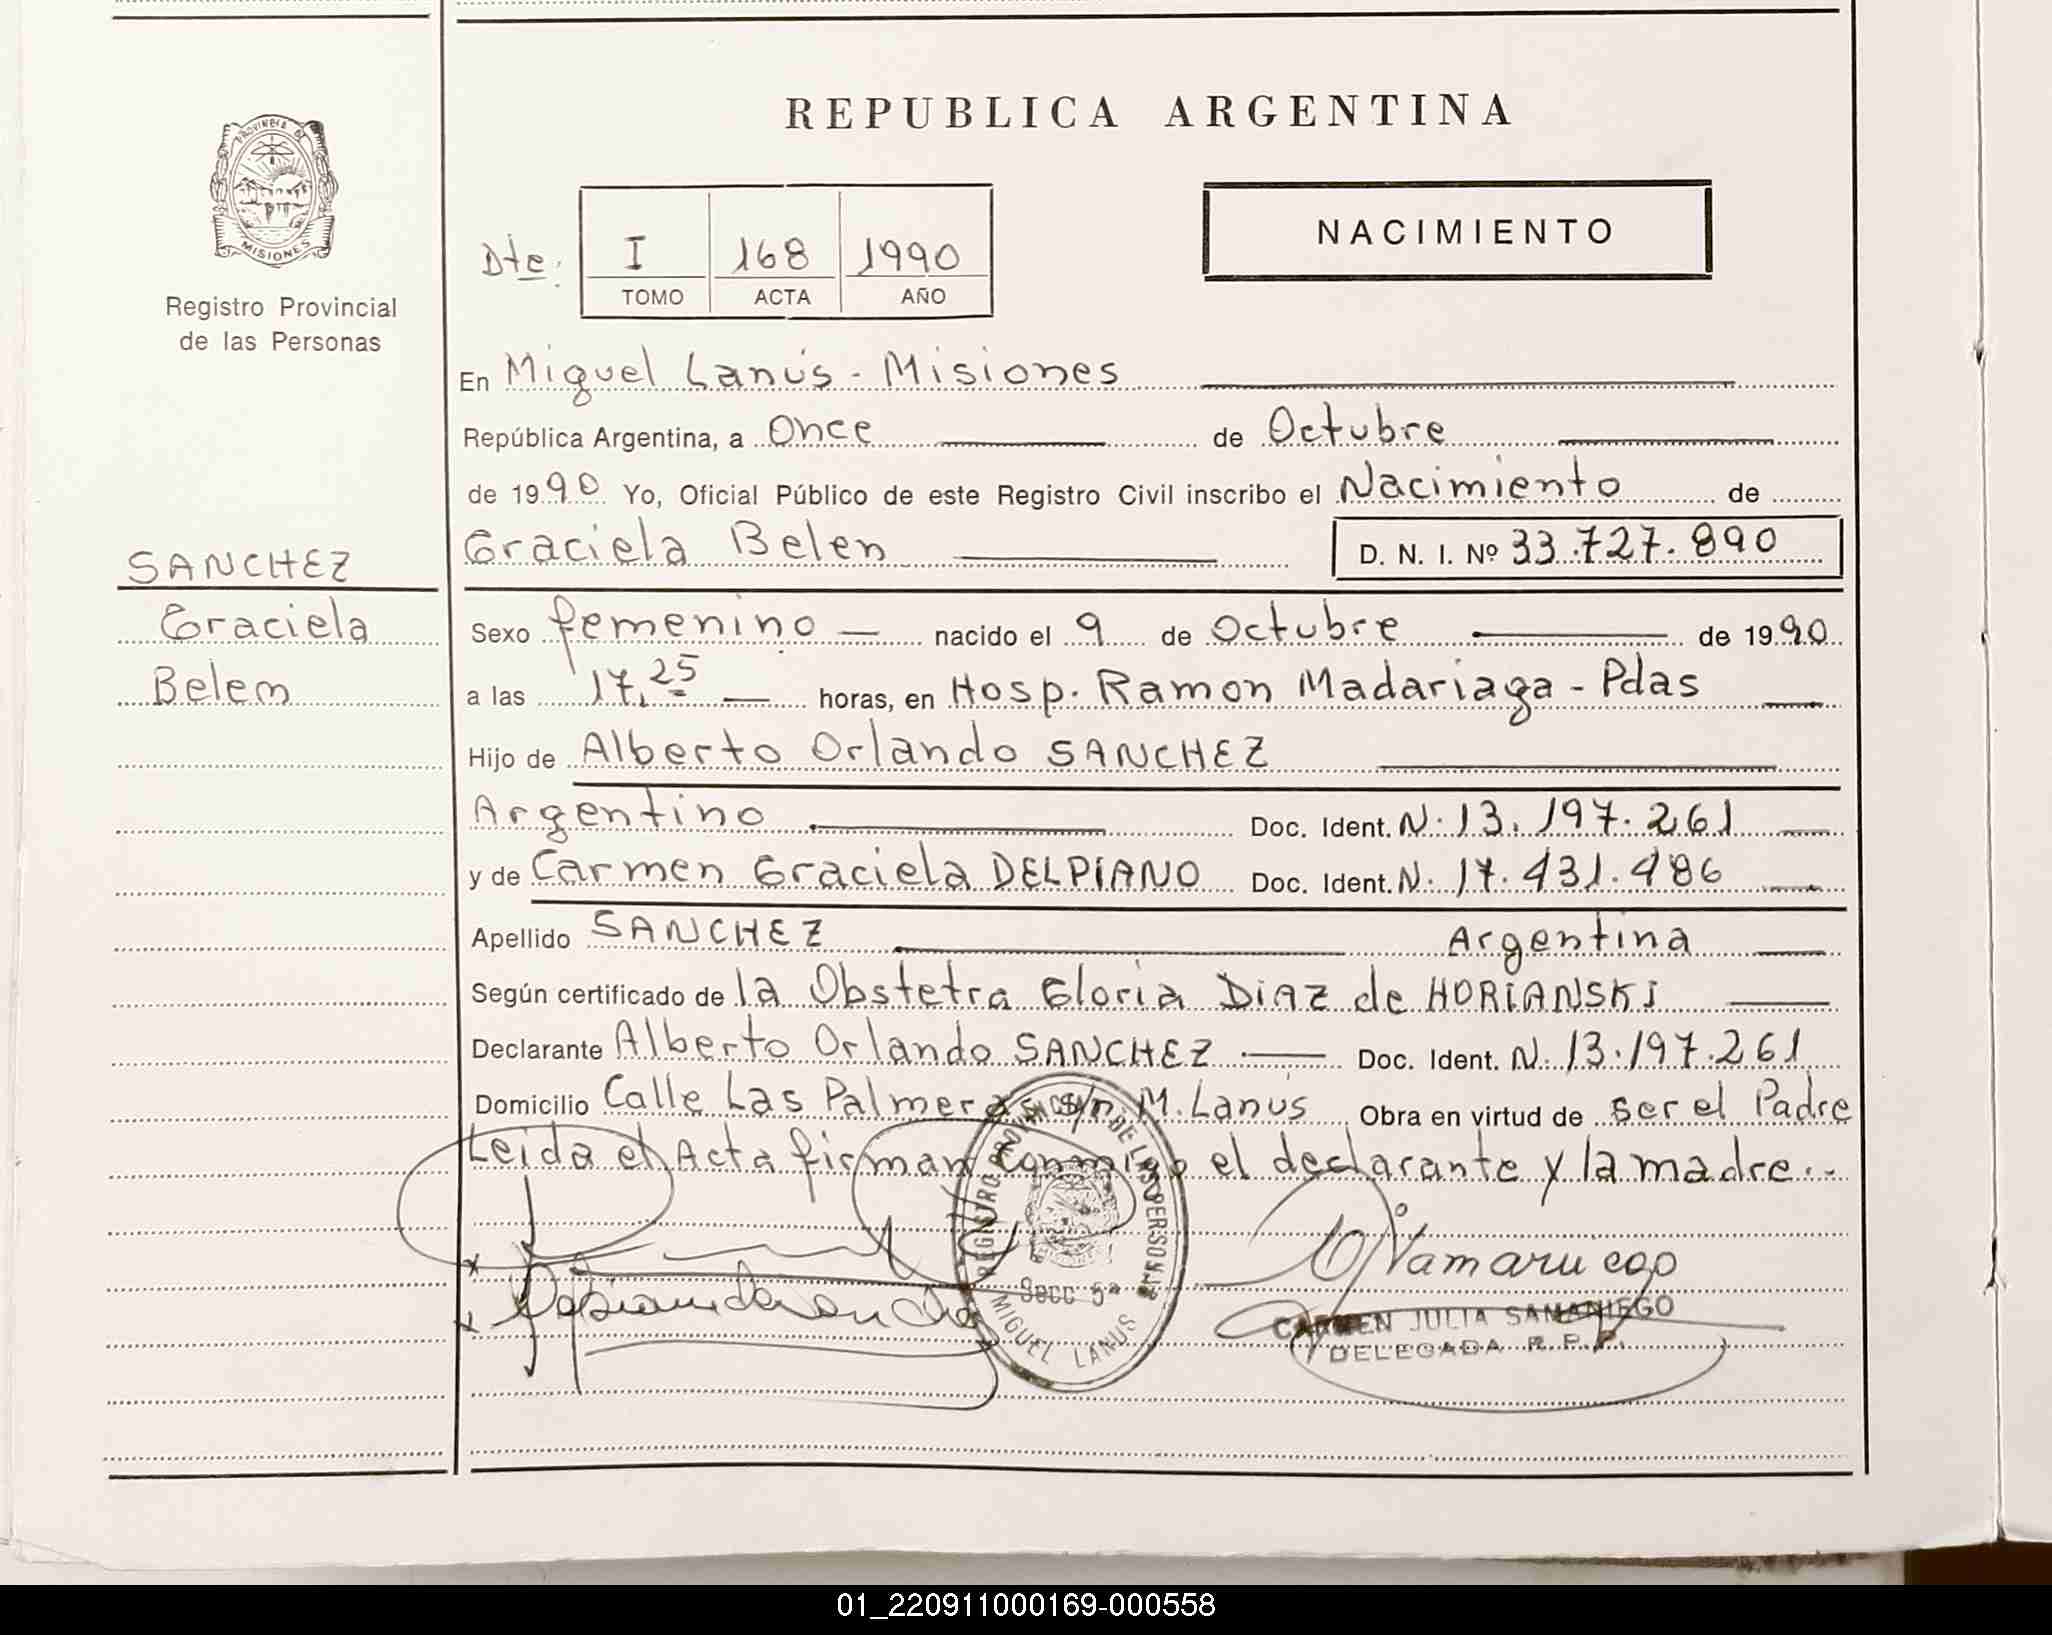 REPUBLICA ARGENTINA
PROVINCIA DE
MISIONES
Registro Provincial
de las Personas
NACIMIENTO
Dte: I 168 1990
TOMO ACTA AÑO
En Miguel Lanús - Misiones
República Argentina, a Once de Octubre
de 1990 Yo, Oficial Público de este Registro Civil inscribo el Nacimiento de
Graciela Belen D. N. I. Nº 33.727.890
SANCHEZ
Graciela
Belem
Sexo femenino nacido el 9 de Octubre de 1990
a las 17,25 horas, en Hosp. Ramon Madariaga - Pdas
Hijo de Alberto Orlando SANCHEZ
Argentino Doc. Ident. N. 13.197.261
y de Carmen Graciela DELPIANO Doc. Ident. N. 17.431.486
Apellido SANCHEZ Argentina
Según certificado de la Obstetra Gloria DIAZ de HORIANSKI
Declarante Alberto Orlando SANCHEZ Doc. Ident. N. 13.197.261
Domicilio Calle Las Palmeras s/n M. Lanús Obra en virtud de ser el Padre
Leida el Acta firman conmigo el declarante y la madre..
REGISTRO PROVINCIAL DE LAS PERSONAS
Secc 5ª
MIGUEL LANUS
CARMEN JULIA SAMANIEGO
DELEGADA R.P.P.
01_220911000169-000558